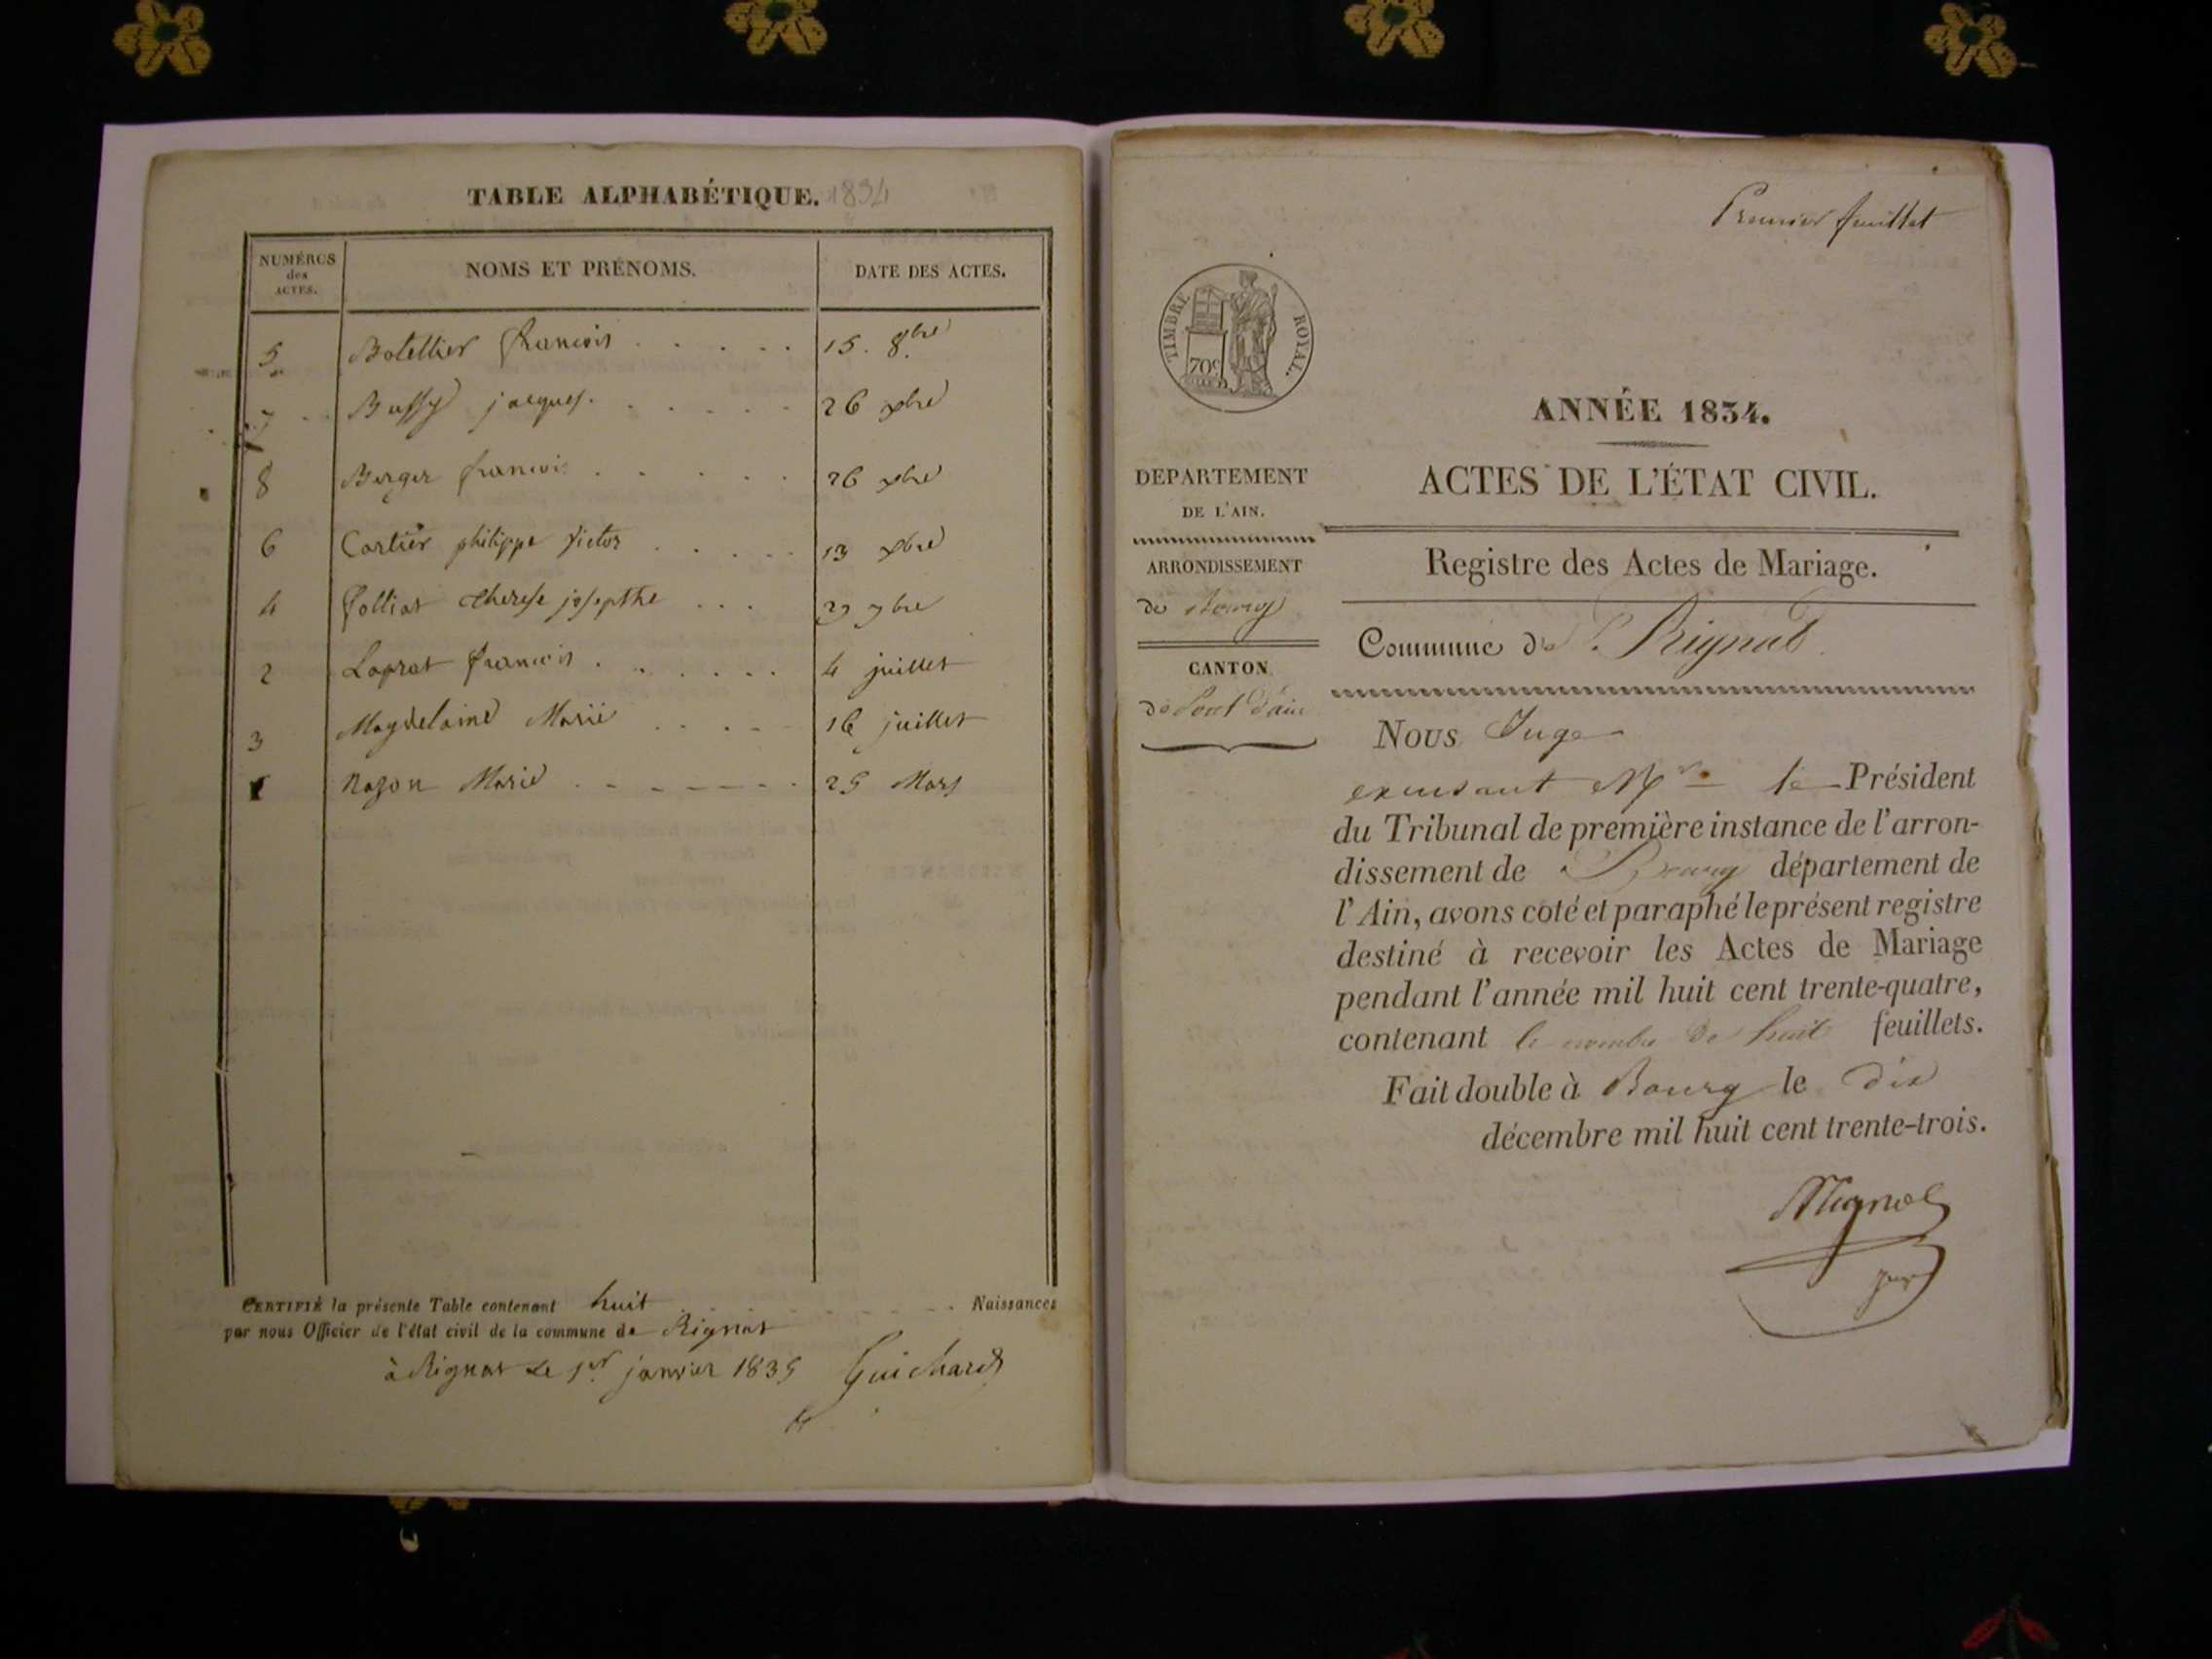 TABLE ALPHABÉTIQUE. 1834
NUMÉROS
des
ACTES.
NOMS ET PRÉNOMS.
DATE DES ACTES.
5 Botellier francois 15. 8.bre
7 Bussy jacques. 26 xbre
8 Berger francois 26 xbre
6 Cartier philippe victor 13 xbre
4 therese josepthe 29 7bre
2 Laprat francois 4 juillet
3 Magdelaine Marie 16 juillet
1 Nason Marie 25 Mars
CERTIFIÉ la présente Table contenant huit Naissances
par nous Officier de l'état civil de la commune de Rignat
à Rignat Le 1er janvier 1835 Guichard
Premier feuillet
TIMBRE ROYAL.
70c
ANNÉE 1834.
ACTES DE L'ÉTAT CIVIL.
DEPARTEMENT
DE L'AIN.
ARRONDISSEMENT
de Bourg
CANTON
de Pont d'ain
Registre des Actes de Mariage.
Commune de Rignat
Nous Juge
Mr le Président
du Tribunal de première instance de l'arron-
dissement de Bourg département de
l'Ain, avons coté et paraphé le présent registre
destiné à recevoir les Actes de Mariage
pendant l'année mil huit cent trente-quatre,
contenant le nombre de huit feuillets.
Fait double à Bourg le dix
décembre mil huit cent trente-trois.